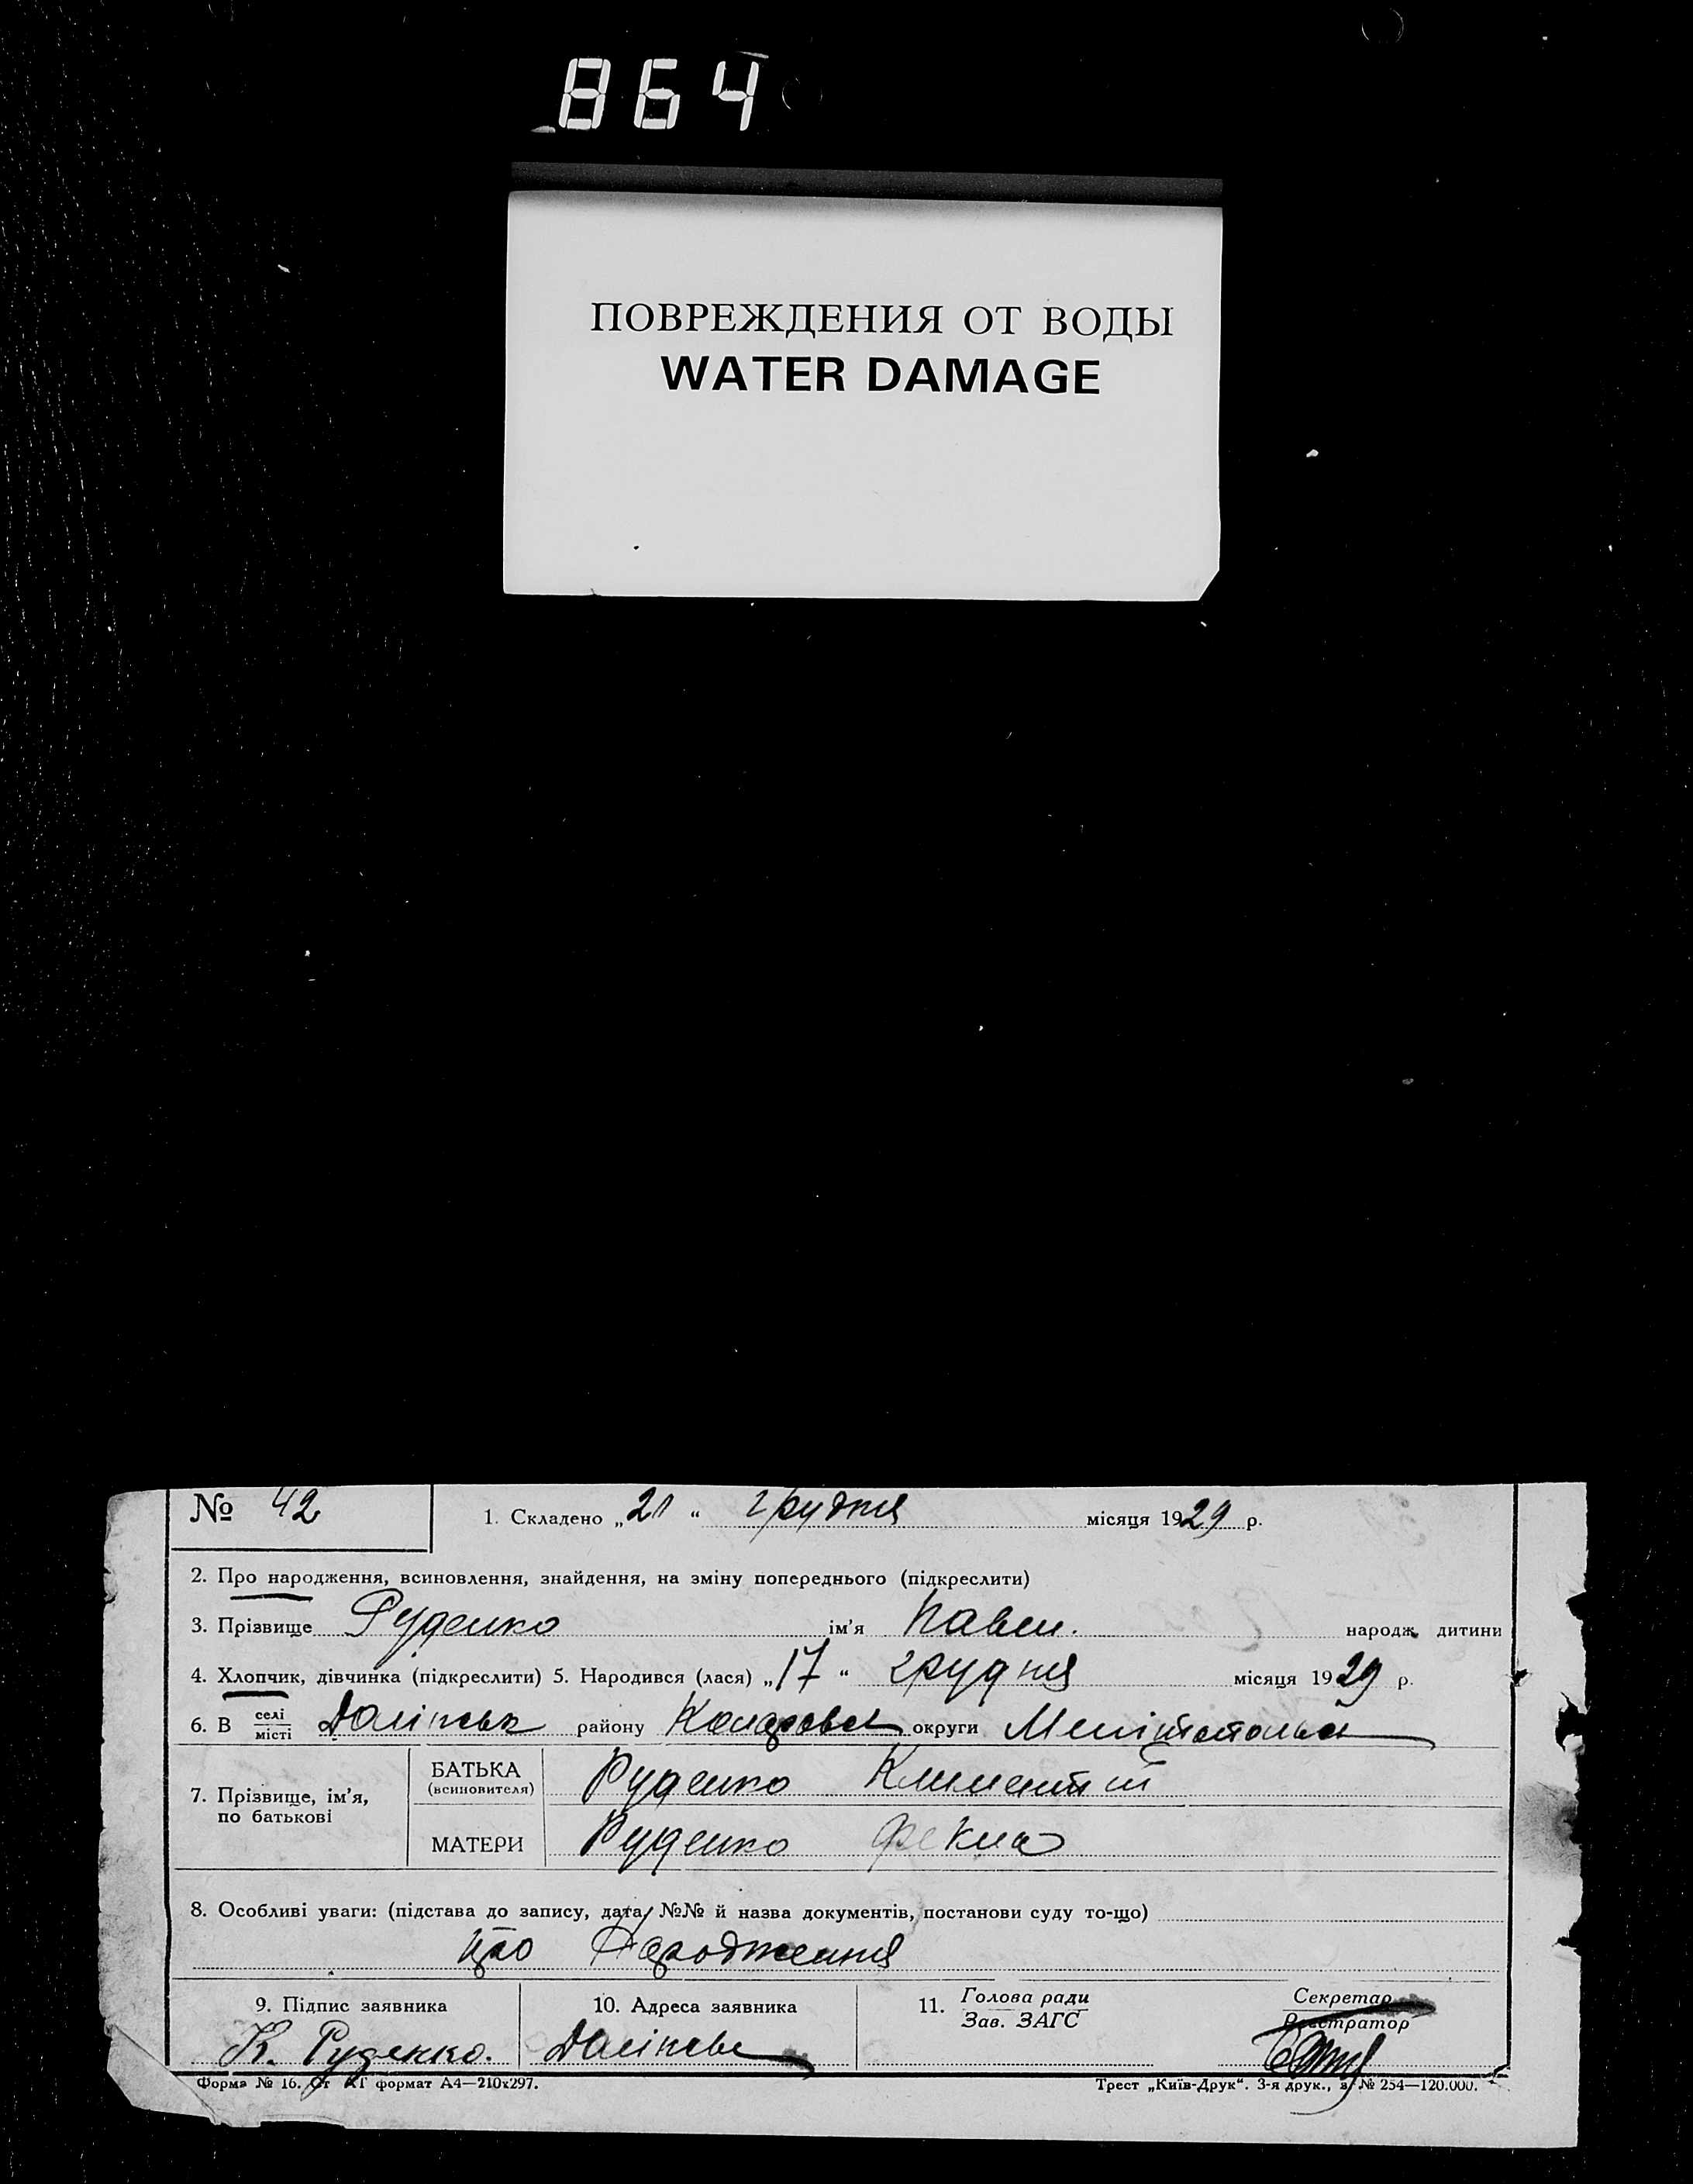 864
ПОВРЕЖДЕНИЯ ОТ ВОДЫ
WATER DAMAGE
№ 42
1. Складено „21“ грудня місяця 1929 р.
2. Про народження, всиновлення, знайдення, на зміну попереднього (підкреслити)
3. Прізвище Руденко ім'я Павел. народж. дитини
4. Хлопчик, дівчинка (підкреслити) 5. Народився (лася) „17“ грудня місяця 1929 р.
6. В селі місті району округи
7. Прізвище, ім'я, по батькові
БАТЬКА (всиновителя) Руденко Климентій
МАТЕРИ Руденко Фекла
8. Особливі уваги: (підстава до запису, дата, №№ й назва документів, постанови суду то-що)
про народження
9. Підпис заявника
К. Руденко.
10. Адреса заявника
11. Голова ради Зав. ЗАГС
Секретар Регстратор
Форма № 16. формат А4—210х297.
Трест „Київ-Друк“. 3-я друк., з. № 254—120.000.